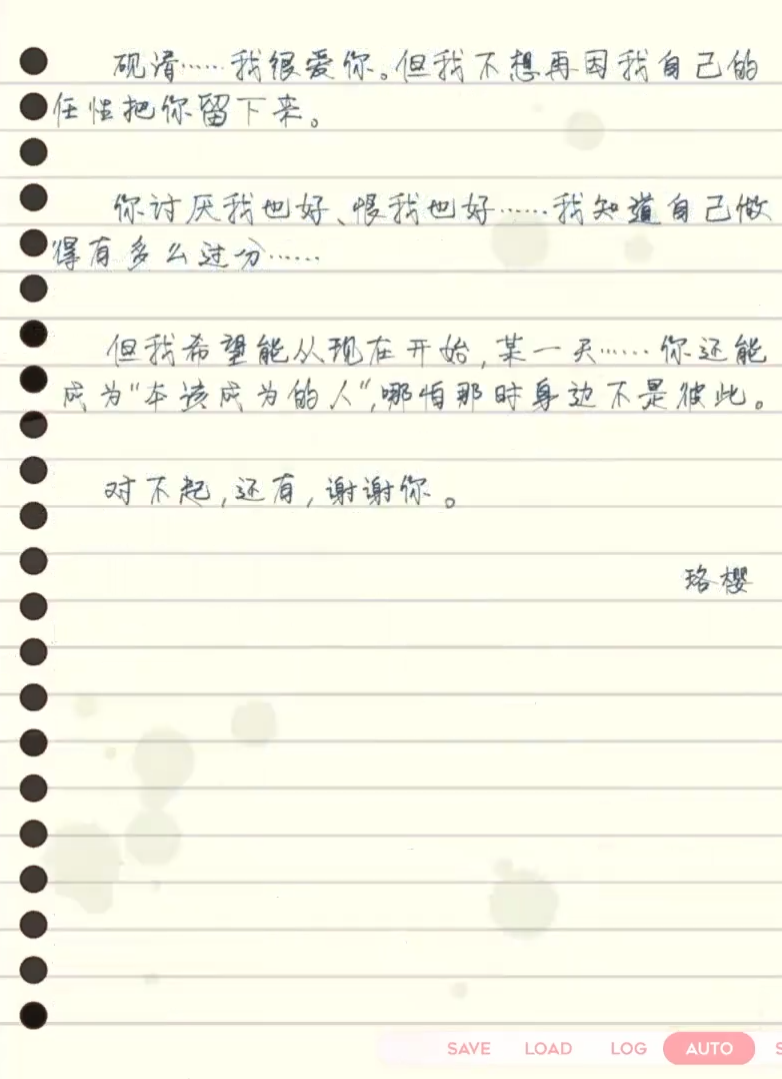 砚清……我很爱你。但我不想再因我自己的
任性把你留下来。
你讨厌我也好、恨我也好……我知道自己做
得有多么过分……
但我希望能从现在开始,某一天……你还能
成为“本该成为的人”,哪怕那时身边不是彼此。
对不起,还有,谢谢你。
珞樱
SAVE LOAD LOG AUTO S